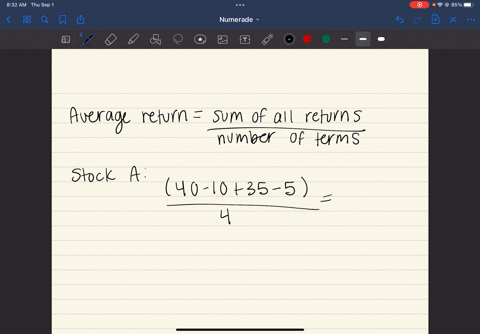 8:32 AM Thu Sep 1
65%
Numerade
Average return = sum of all returns
number of terms
Stock A: (40-10+35-5) =
4